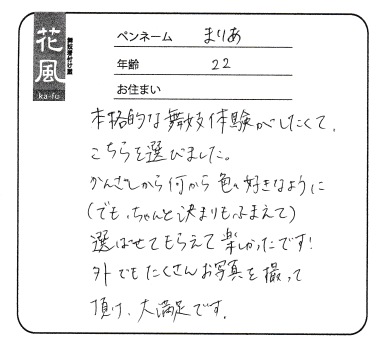 花風
ka-fu
ペンネーム まりあ
年齢 22
お住まい
本格的な舞妓体験がしたくて、
こちらを選びました。
かんざしから何から色々好きなように
(でも、ちゃんと決まりもふまえて)
選ばせてもらえて楽しかったです!
外でもたくさんお写真を撮って
頂け、大満足です。